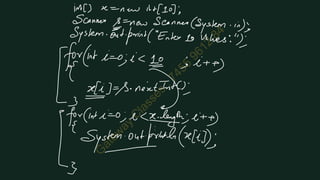 int[] x = new int[10];
Scanner s = new Scanner(System.in);
System.out.print("Enter 10 values:");
for(int i=0; i<10; i++)
{
x[i] = s.nextInt();
}
for(int i=0; i<x.length; i++)
{
System.out.println(x[i]);
}